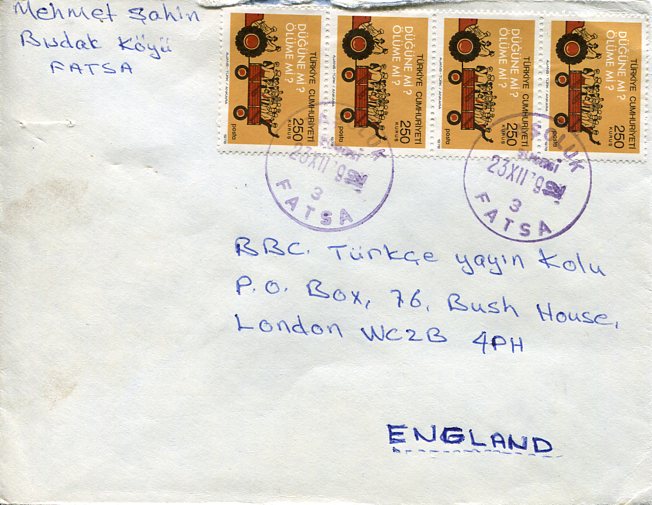 Mehmet Şahin
Budak Köyü
FATSA
DÜĞÜNE Mİ?
ÖLÜME Mİ?
TÜRKİYE CUMHURİYETİ
250
KURUŞ
posta
DÜĞÜNE Mİ?
ÖLÜME Mİ?
TÜRKİYE CUMHURİYETİ
250
KURUŞ
posta
DÜĞÜNE Mİ?
ÖLÜME Mİ?
TÜRKİYE CUMHURİYETİ
250
KURUŞ
posta
DÜĞÜNE Mİ?
ÖLÜME Mİ?
TÜRKİYE CUMHURİYETİ
250
KURUŞ
posta
23XII
3
FATSA
23XII
3
FATSA
BBC. Türkçe yayın Kolu
P.O. Box, 76, Bush House,
London WC2B 4PH
ENGLAND